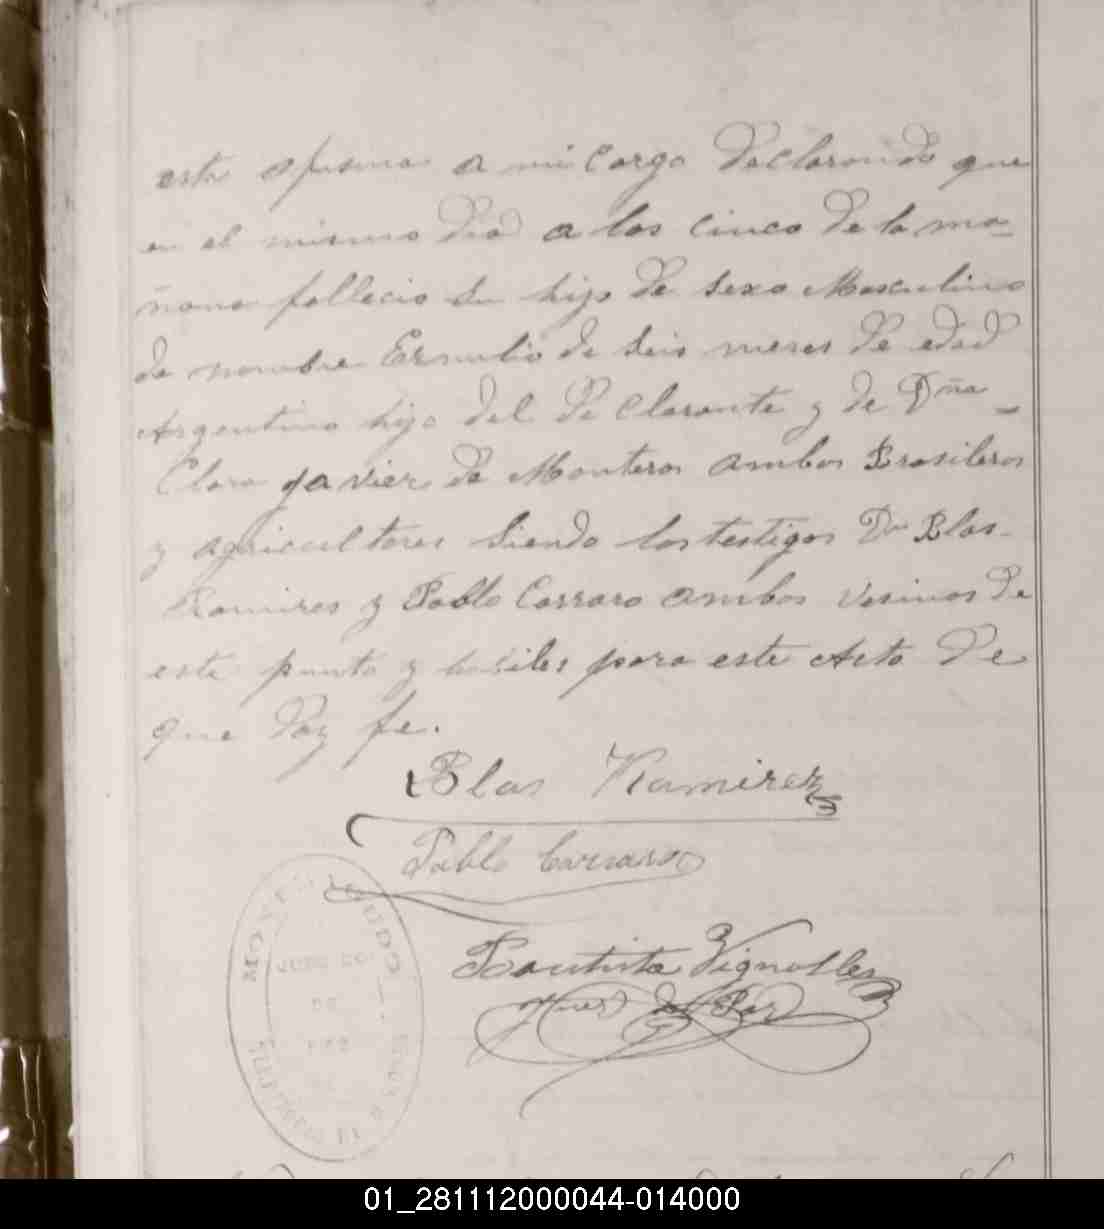 esta ofisina a mi Cargo Declarando que
en el mismo Dia a las cinco De la ma-
ñana fallecio su hijo De sexo Masculino
de nombre Ermulio de seis meses De edad
Argentino hijo del De Clarante y de Dña
Clara Javier de Monteros ambos Brasileros
y agricultores siendo los testigos Dn Blas
Ramires y Pablo Carraro ambos vesinos De
este punto y habiles para este Acto De
que Doy fe.
Blas Ramirez
Pablo Carraro
Bautista Vignolles
Juez de Paz
JUZGADO
DE
PAZ
01_281112000044-014000